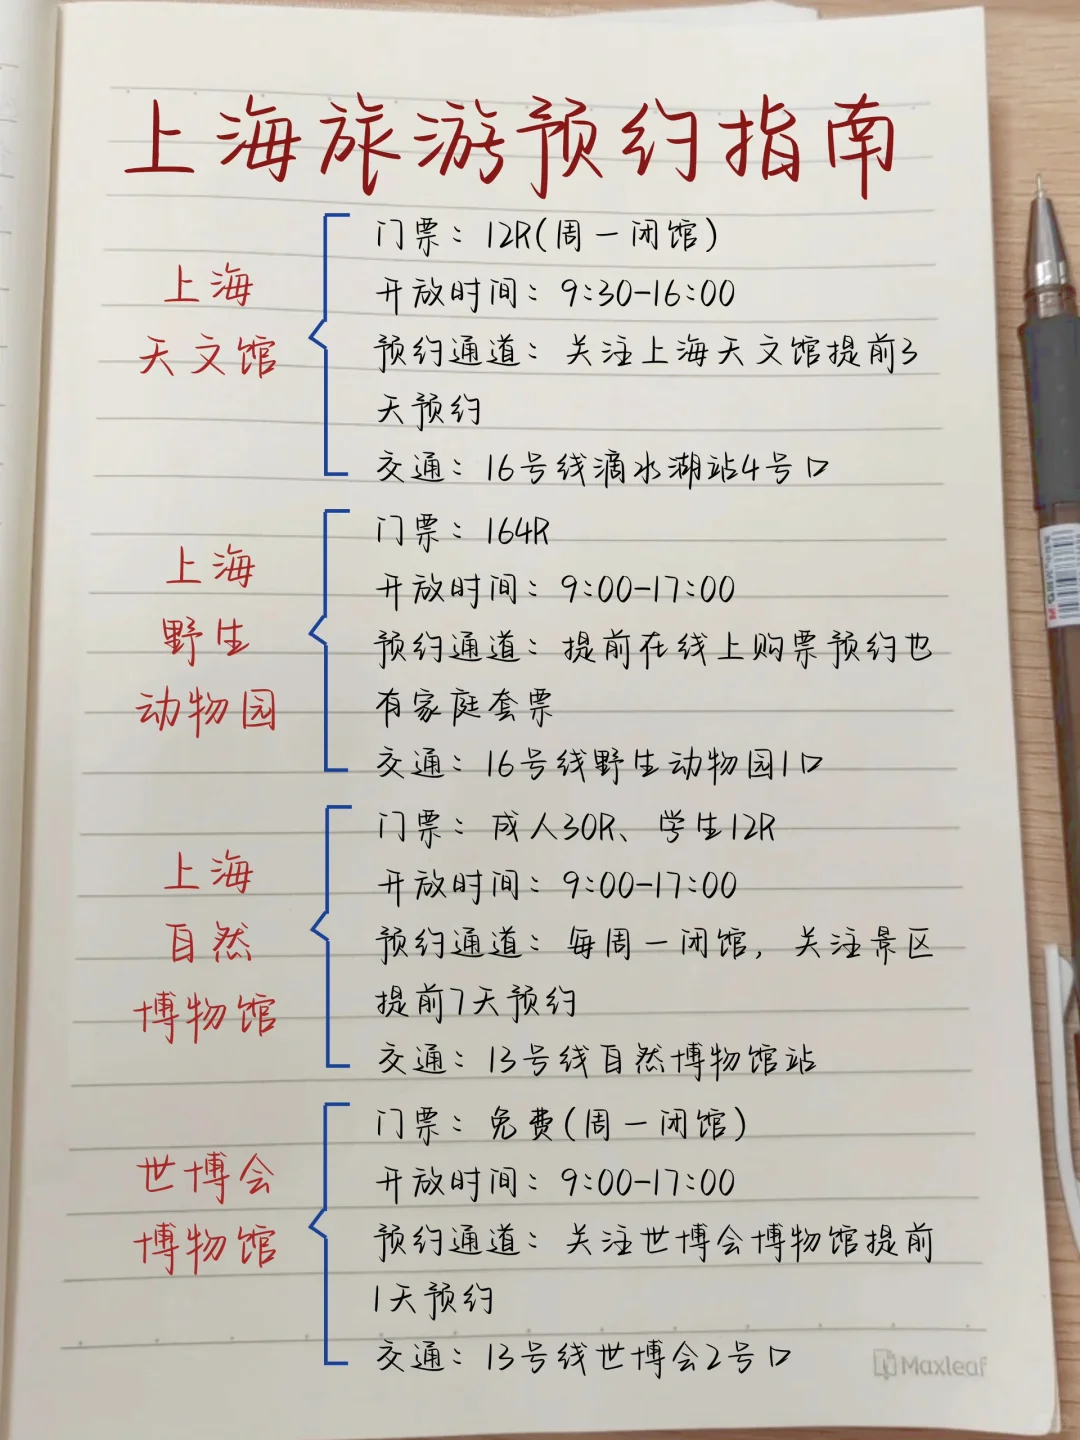 上海旅游预约指南
上海
天文馆
门票：12R(周一闭馆)
开放时间：9:30-16:00
预约通道：关注上海天文馆提前3
天预约
交通：16号线滴水湖站4号口
上海
野生
动物园
门票：164R
开放时间：9:00-17:00
预约通道：提前在线上购票预约也
有家庭套票
交通：16号线野生动物园1口
上海
自然
博物馆
门票：成人30R、学生12R
开放时间：9:00-17:00
预约通道：每周一闭馆，关注景区
提前7天预约
交通：13号线自然博物馆站
世博会
博物馆
门票：免费(周一闭馆)
开放时间：9:00-17:00
预约通道：关注世博会博物馆提前
1天预约
交通：13号线世博会2号口
Maxleaf